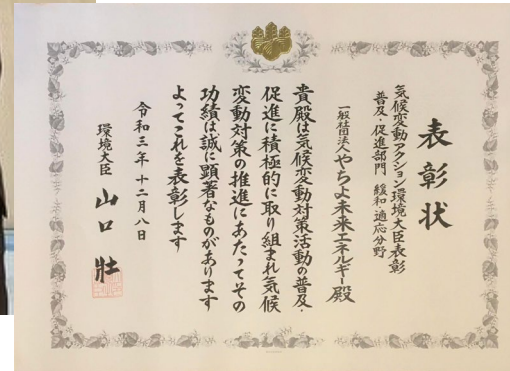 表彰状
気候変動アクション環境大臣表彰
普及・促進部門 緩和・適応分野
一般社団法人やちよ未来エネルギー殿
貴殿は気候変動対策活動の普及・
促進に積極的に取り組まれ気候
変動対策の推進にあたってその
功績は誠に顕著なものがあります
よってこれを表彰します
令和三年十二月八日
環境大臣 山口壯